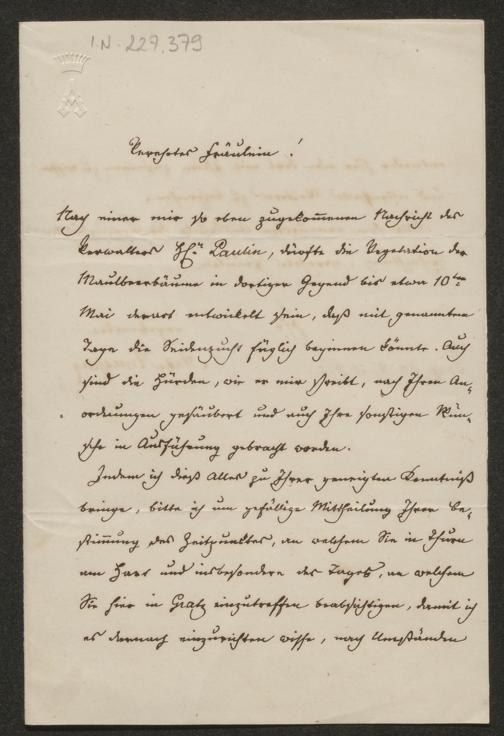 I.N. 227.379
Verehrtes Fräulein!
Nach einer mir so eben zugekommenen Nachricht des
Verwalters H̲n̲ Paulin, dürfte die Vegetation der
Maulbeerbäume in dortiger Gegend bis etwa 10ten
Mai derart entwickelt sein, daß mit genanntem
Tage die Seidenzucht füglich beginnen könnte. Auch
sind die Hürden, wie er mir schreibt, nach Ihren An-
ordnungen gesäubert und auch Ihre sonstigen Wün-
sche in Ausführung gebracht worden.
Indem ich dieß Alles zu Ihrer geneigten Kenntniß
bringe, bitte ich um gefällige Mittheilung Ihrer Be-
stimmung des Zeitpunktes, an welchem Sie in Thurn
am Hart und insbesondere des Tages, an welchem
Sie hier in Gratz einzutreffen beabsichtigen, damit ich
es darnach einzurichten wisse, nach Umständen